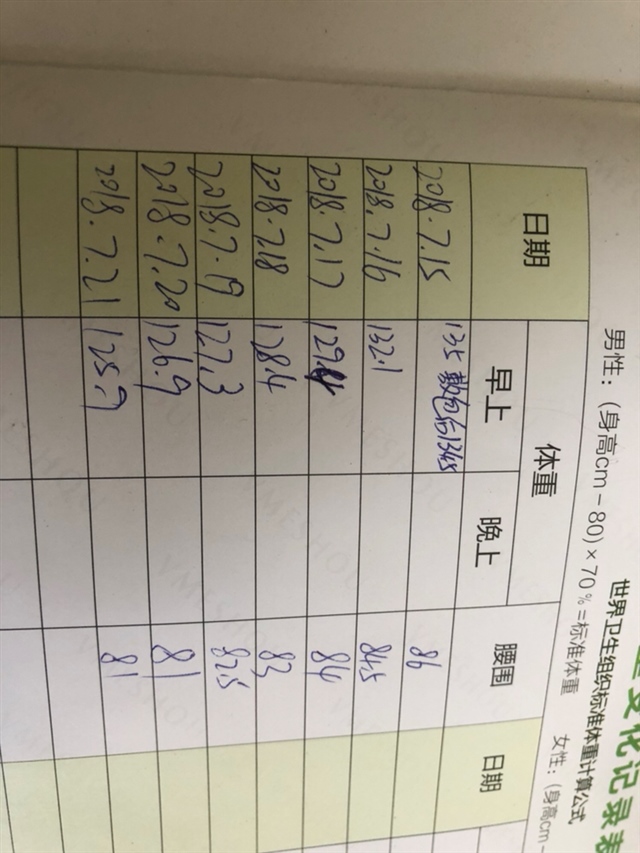 变化记录表
世界卫生组织标准体重计算公式
男性：(身高cm－80)×70％=标准体重 女性：(身高cm－
日期 体重 腰围 日期
早上 晚上
2018.7.15 135 敷包后134.5 86
2018.7.16 132.1 84.5
2018.7.17 129.4 84
2018.7.18 128.4 83
2018.7.19 127.3 82.5
2018.7.20 126.9 81
2018.7.21 125.9 81